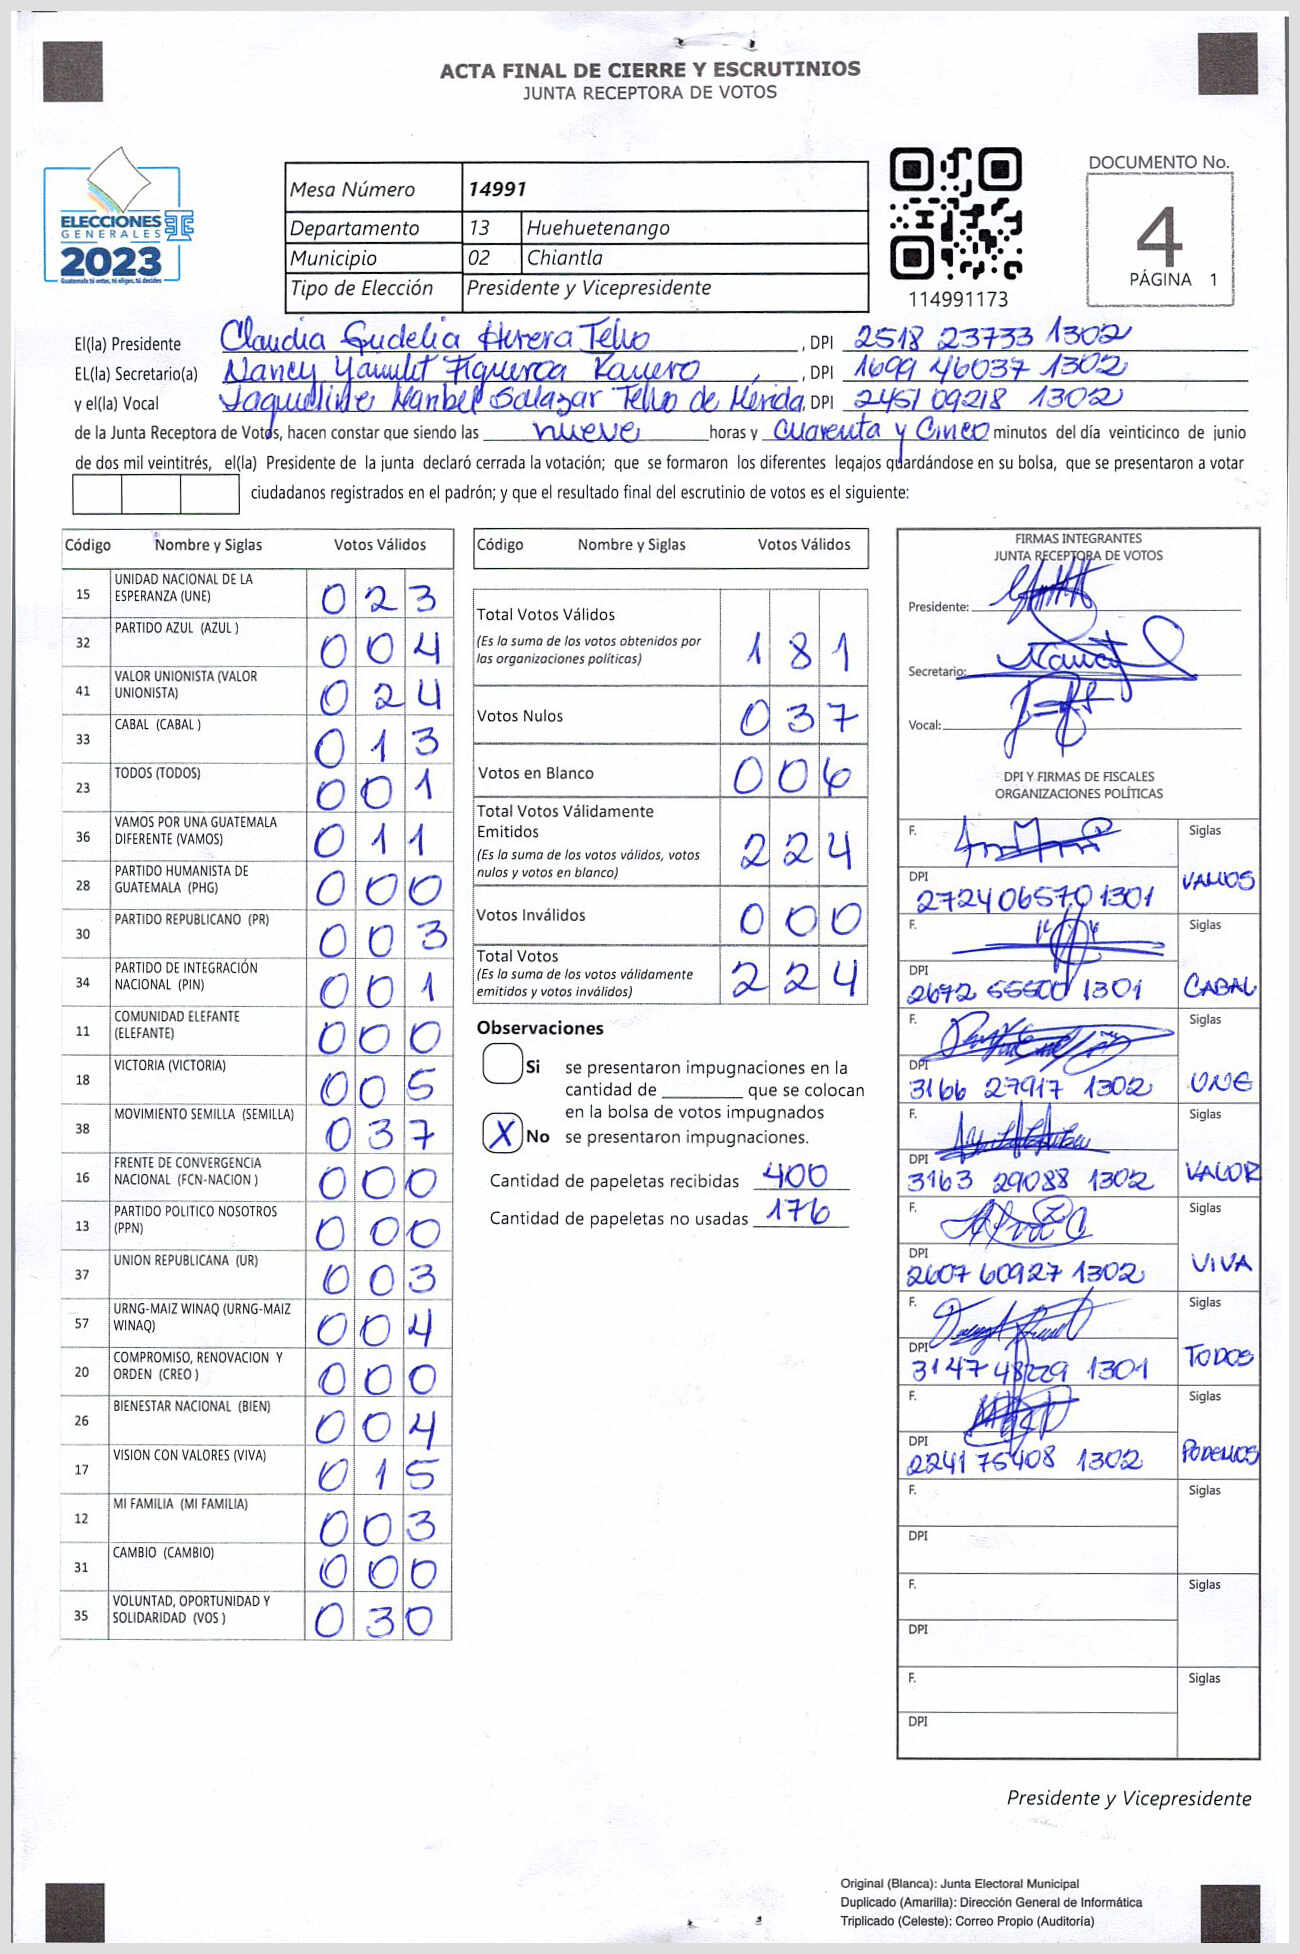 ACTA FINAL DE CIERRE Y ESCRUTINIOS
JUNTA RECEPTORA DE VOTOS
ELECCIONES
GENERALES
2023
Guatemala tú eres, tú eliges, tú decides
Mesa Número 14991
Departamento 13 Huehuetenango
Municipio 02 Chiantla
Tipo de Elección Presidente y Vicepresidente
114991173
DOCUMENTO No.
4
PÁGINA 1
El(la) Presidente Claudia Gudelia Herrera Tello, DPI 2518 23733 1302
EL(la) Secretario(a) Nancy Figueroa, DPI 1699 46037 1302
y el(la) Vocal Jaqueline Maribel Salazar Tello de Mérida, DPI 2451 09218 1302
de la Junta Receptora de Votos, hacen constar que siendo las nueve horas y cuarenta y cinco minutos del día veinticinco de junio
de dos mil veintitrés, el(la) Presidente de la junta declaró cerrada la votación; que se formaron los diferentes legajos guardándose en su bolsa, que se presentaron a votar
ciudadanos registrados en el padrón; y que el resultado final del escrutinio de votos es el siguiente:
Código Nombre y Siglas Votos Válidos
15 UNIDAD NACIONAL DE LA ESPERANZA (UNE) 023
32 PARTIDO AZUL (AZUL ) 004
41 VALOR UNIONISTA (VALOR UNIONISTA) 024
33 CABAL (CABAL ) 013
23 TODOS (TODOS) 001
36 VAMOS POR UNA GUATEMALA DIFERENTE (VAMOS) 011
28 PARTIDO HUMANISTA DE GUATEMALA (PHG) 000
30 PARTIDO REPUBLICANO (PR) 003
34 PARTIDO DE INTEGRACIÓN NACIONAL (PIN) 001
11 COMUNIDAD ELEFANTE (ELEFANTE) 000
18 VICTORIA (VICTORIA) 005
38 MOVIMIENTO SEMILLA (SEMILLA) 037
16 FRENTE DE CONVERGENCIA NACIONAL (FCN-NACION ) 000
13 PARTIDO POLITICO NOSOTROS (PPN) 000
37 UNION REPUBLICANA (UR) 003
57 URNG-MAIZ WINAQ (URNG-MAIZ WINAQ) 004
20 COMPROMISO, RENOVACION Y ORDEN (CREO ) 000
26 BIENESTAR NACIONAL (BIEN) 004
17 VISION CON VALORES (VIVA) 015
12 MI FAMILIA (MI FAMILIA) 003
31 CAMBIO (CAMBIO) 000
35 VOLUNTAD, OPORTUNIDAD Y SOLIDARIDAD (VOS ) 030
Código Nombre y Siglas Votos Válidos
Total Votos Válidos 181
(Es la suma de los votos obtenidos por
las organizaciones políticas)
Votos Nulos 037
Votos en Blanco 006
Total Votos Válidamente
Emitidos 224
(Es la suma de los votos válidos, votos
nulos y votos en blanco)
Votos Inválidos 000
Total Votos 224
(Es la suma de los votos válidamente
emitidos y votos inválidos)
Observaciones
Si se presentaron impugnaciones en la
cantidad de ________ que se colocan
en la bolsa de votos impugnados
X No se presentaron impugnaciones.
Cantidad de papeletas recibidas 400
Cantidad de papeletas no usadas 176
FIRMAS INTEGRANTES
JUNTA RECEPTORA DE VOTOS
Presidente:
Secretario:
Vocal:
DPI Y FIRMAS DE FISCALES
ORGANIZACIONES POLÍTICAS
F. Siglas
DPI 2724 06570 1301 VAMOS
F. Siglas
DPI 2672 55500 1301 CABAL
F. Siglas
DPI 3166 27917 1302 UNE
F. Siglas
DPI 3163 29088 1302 VALOR
F. Siglas
DPI 2607 60927 1302 VIVA
F. Siglas
DPI 3147 48229 1301 TODOS
F. Siglas
DPI 2241 75408 1302 PODEMOS
F. Siglas
DPI
F. Siglas
DPI
F. Siglas
DPI
Presidente y Vicepresidente
Original (Blanca): Junta Electoral Municipal
Duplicado (Amarilla): Dirección General de Informática
Triplicado (Celeste): Correo Propio (Auditoría)